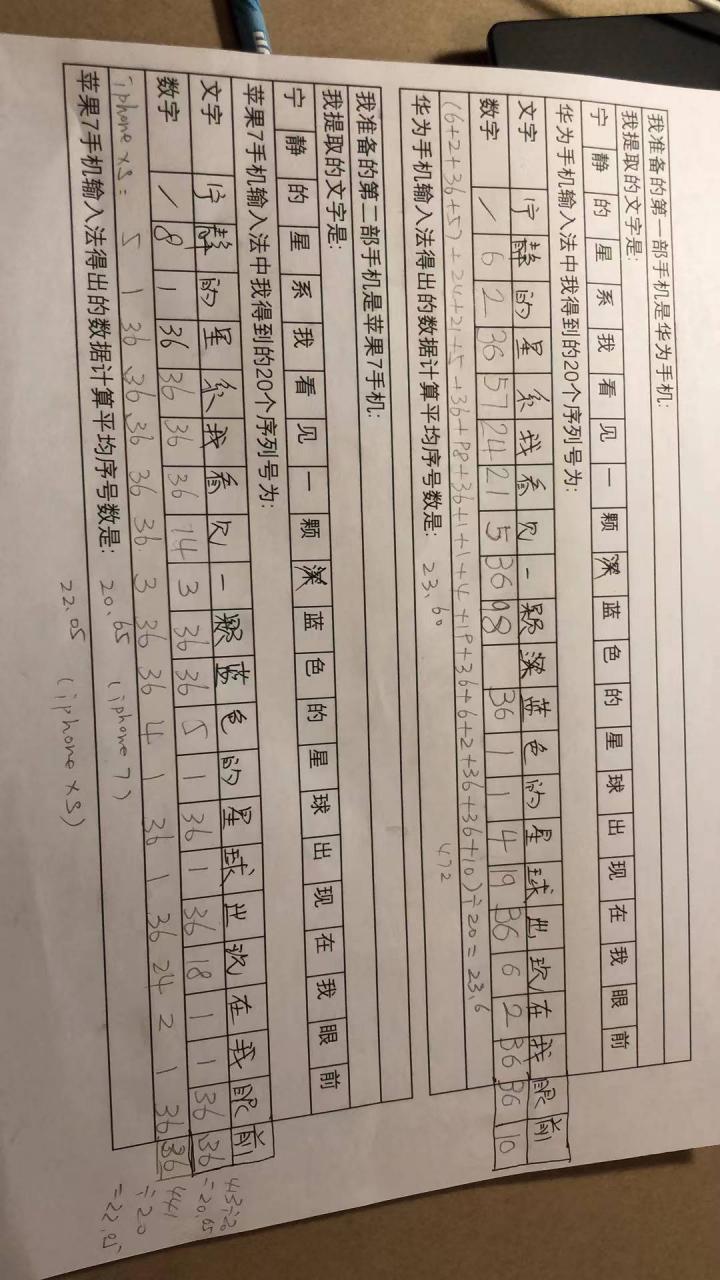 我准备的第一部手机是华为手机:
我提取的文字是:
宁 静 的 星 系 我 看 见 一 颗 深 蓝 色 的 星 球 出 现 在 我 眼 前
华为手机输入法中我得到的20个序列号为:
文字 宁 静 的 星 系 我 看 见 一 颗 深 蓝 色 的 星 球 出 现 在 我 眼 前
数字 / 6 2 36 57 24 21 5 36 98 36 1 1 4 19 36 6 2 36 36 10
(6+2+36+57+24+21+5+36+98+36+1+1+4+19+36+6+2+36+36+10)÷20=23.6
472
华为手机输入法得出的数据计算平均序号数是: 23.60
我准备的第二部手机是苹果7手机:
我提取的文字是:
宁 静 的 星 系 我 看 见 一 颗 深 蓝 色 的 星 球 出 现 在 我 眼 前
苹果7手机输入法中我得到的20个序列号为:
文字 宁 静 的 星 系 我 看 见 一 颗 蓝 色 的 星 球 出 现 在 我 眼 前
数字 / 8 1 36 36 36 36 14 3 36 36 5 1 36 1 36 18 1 1 36 36
413÷20
=20.65
iphone xs: 5 1 36 36 36 36 36 3 36 36 4 1 36 1 36 24 2 1 36 36
441
÷20
=22.05
苹果7手机输入法得出的数据计算平均序号数是: 20.65 (iphone 7)
22.05 (iphone xs)